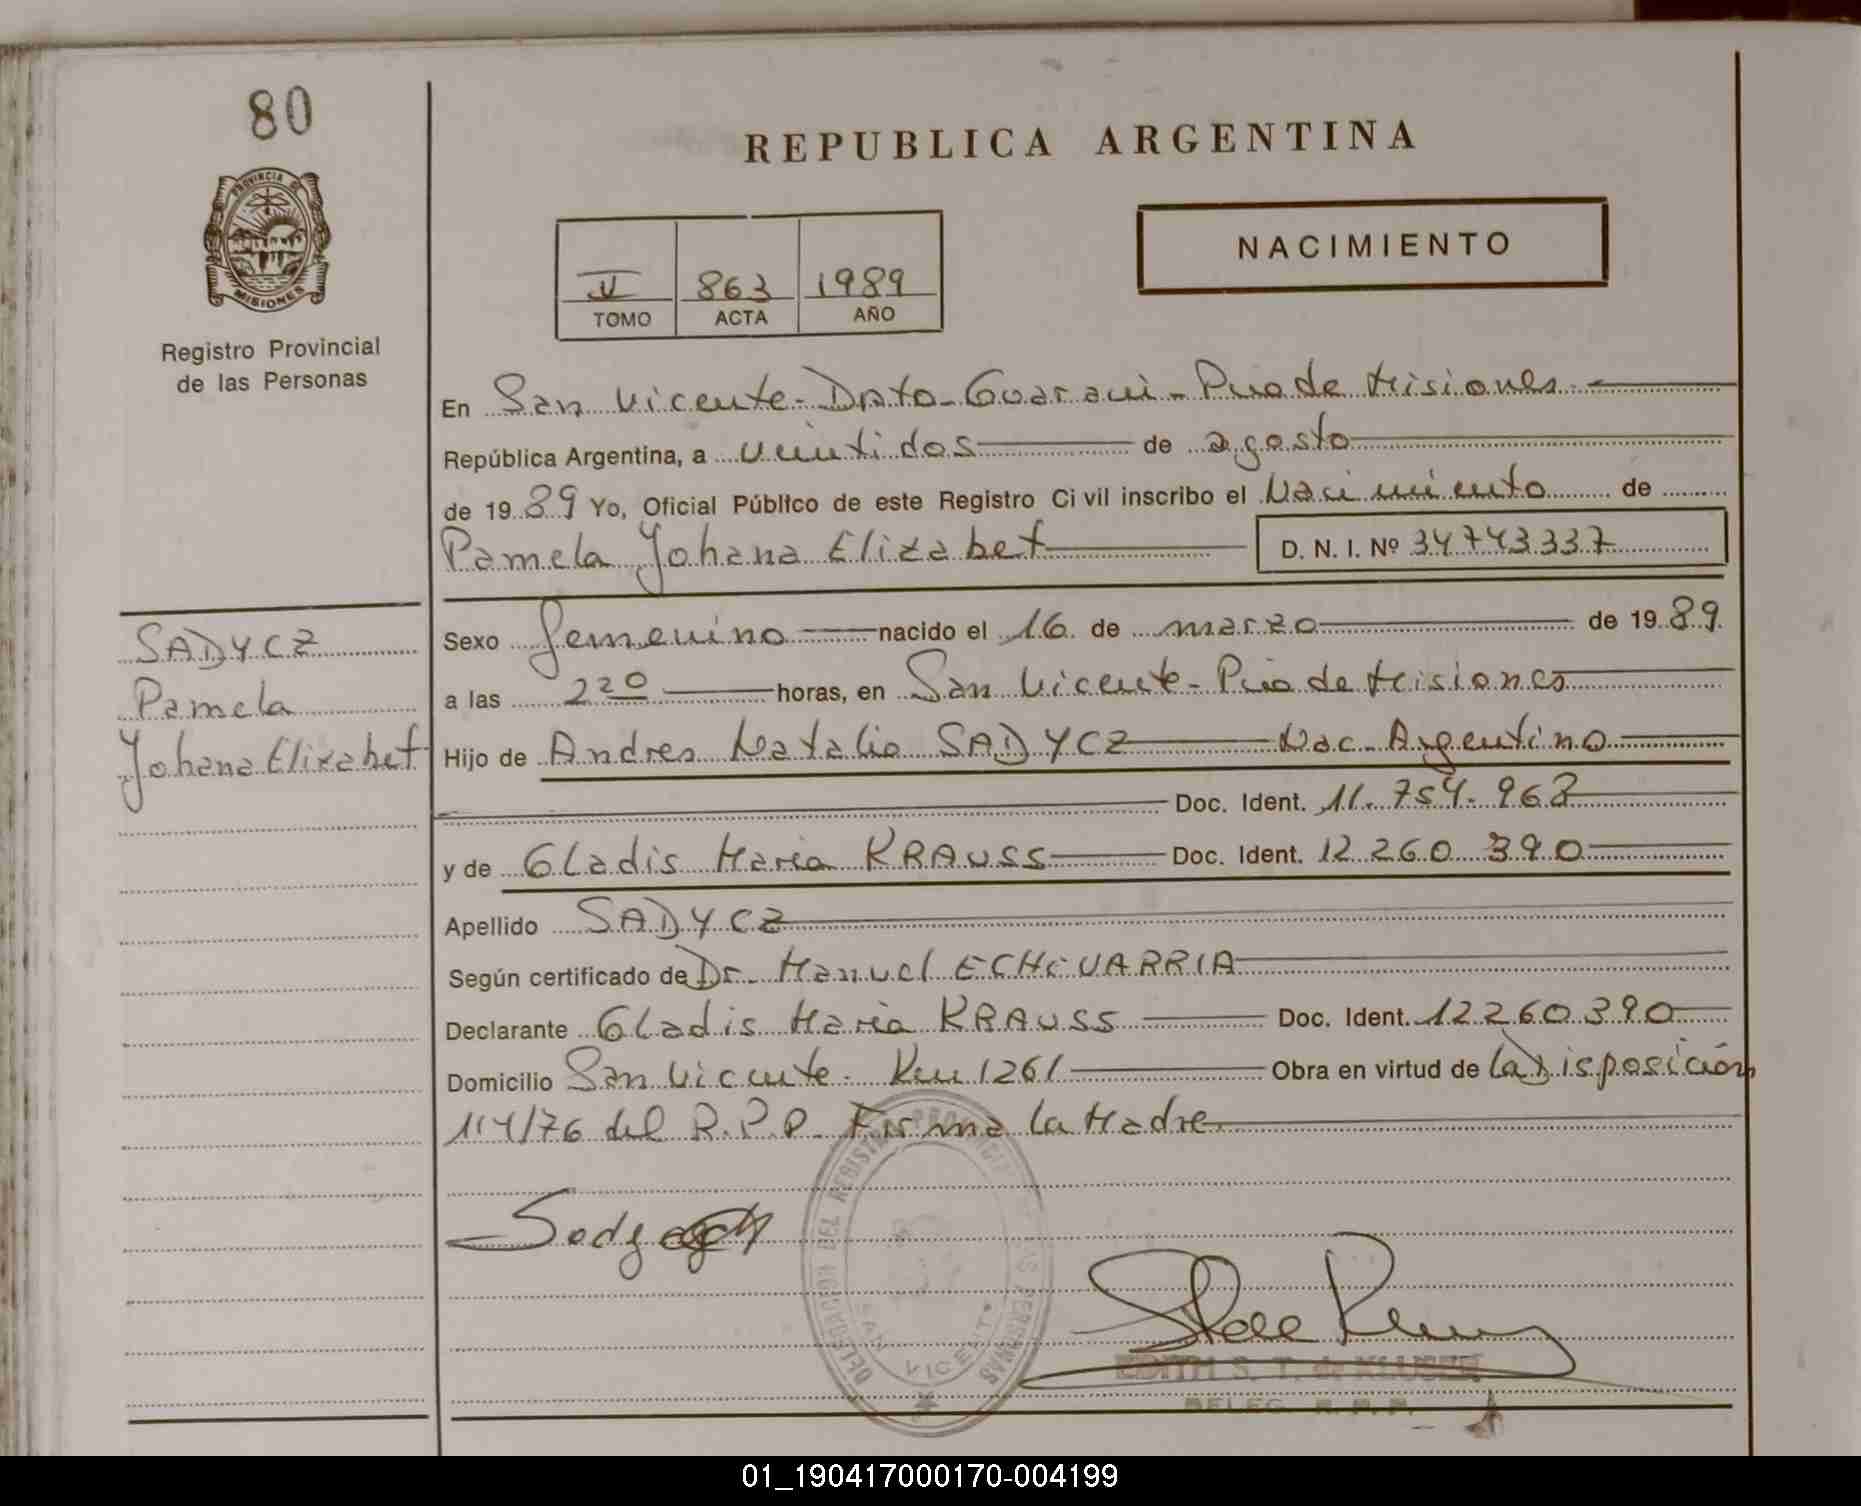 80
REPUBLICA ARGENTINA
PROVINCIA DE
MISIONES
Registro Provincial
de las Personas
V 863 1989
TOMO ACTA AÑO
NACIMIENTO
En San Vicente - Dpto - Guarani - Pcia de Misiones
República Argentina, a veintidos de agosto
de 1989 Yo, Oficial Público de este Registro Civil inscribo el Nacimiento de
Pamela Yohana Elizabet D. N. I. Nº 34743337
SADYCZ
Pamela
Yohana Elizabet
Sexo femenino nacido el 16 de marzo de 1989
a las 2 20 horas, en San Vicente - Pcia de Misiones
Hijo de Andres Natalio SADYCZ Nac. Argentino
Doc. Ident. 11.754.963
y de Gladis Maria KRAUSS Doc. Ident. 12 260 390
Apellido SADYCZ
Según certificado de Dr. Manuel ECHEVARRIA
Declarante Gladis Maria KRAUSS Doc. Ident. 12260390
Domicilio San Vicente - Km 1261 Obra en virtud de la Disposición
114/76 del R.P.P. Firma la Madre
DELEGACION DEL REGISTRO PROVINCIAL DE LAS PERSONAS
SAN VICENTE
EDITH S. T. de
DELEG. R. P. P.
01_190417000170-004199